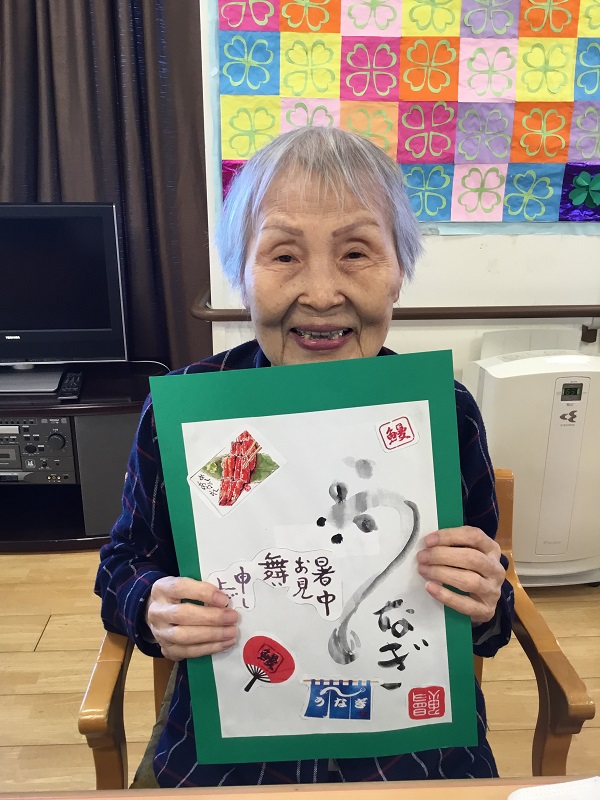 鰻
うなぎ
暑中
お見
舞い
申し
上げ
鰻
うなぎ
TOSHIBA